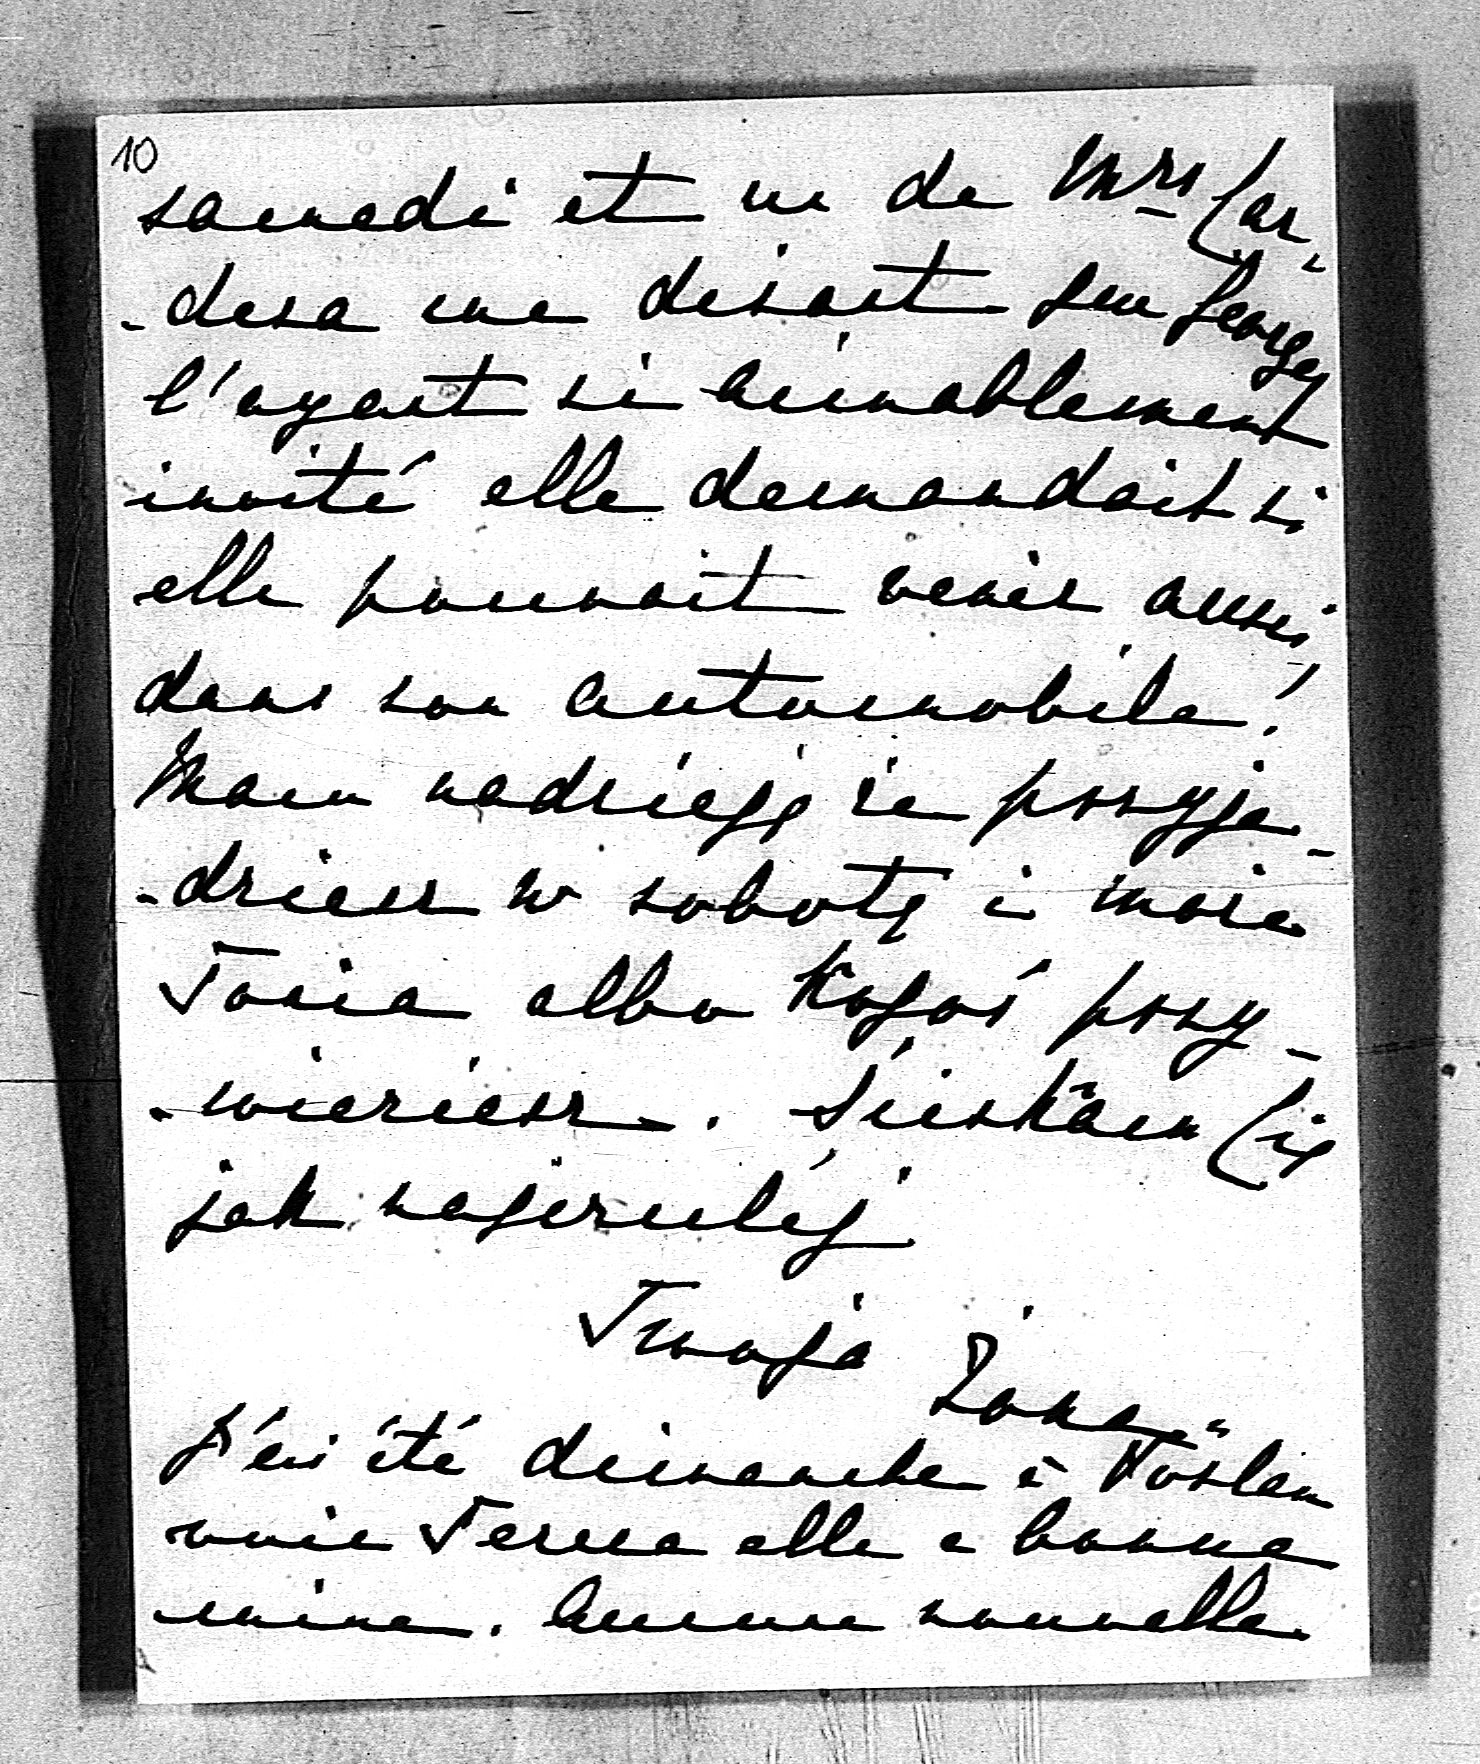 10
samedi et un de Mrs Car-
-desa me disant que George
l'ayant si aimablement
invité elle demandait si
elle pouvait venir aussi,
dans son automobile!
Mam nadzieję że przyje-
-dziesz w sobotę i może
Tonia albo Kogoś przy-
-wieziesz. Ściskam Cię
jak najczulej
Twoja Żona
J'ai été dimanche à
voir Teresa elle a bonne
mine. Aucune nouvelle